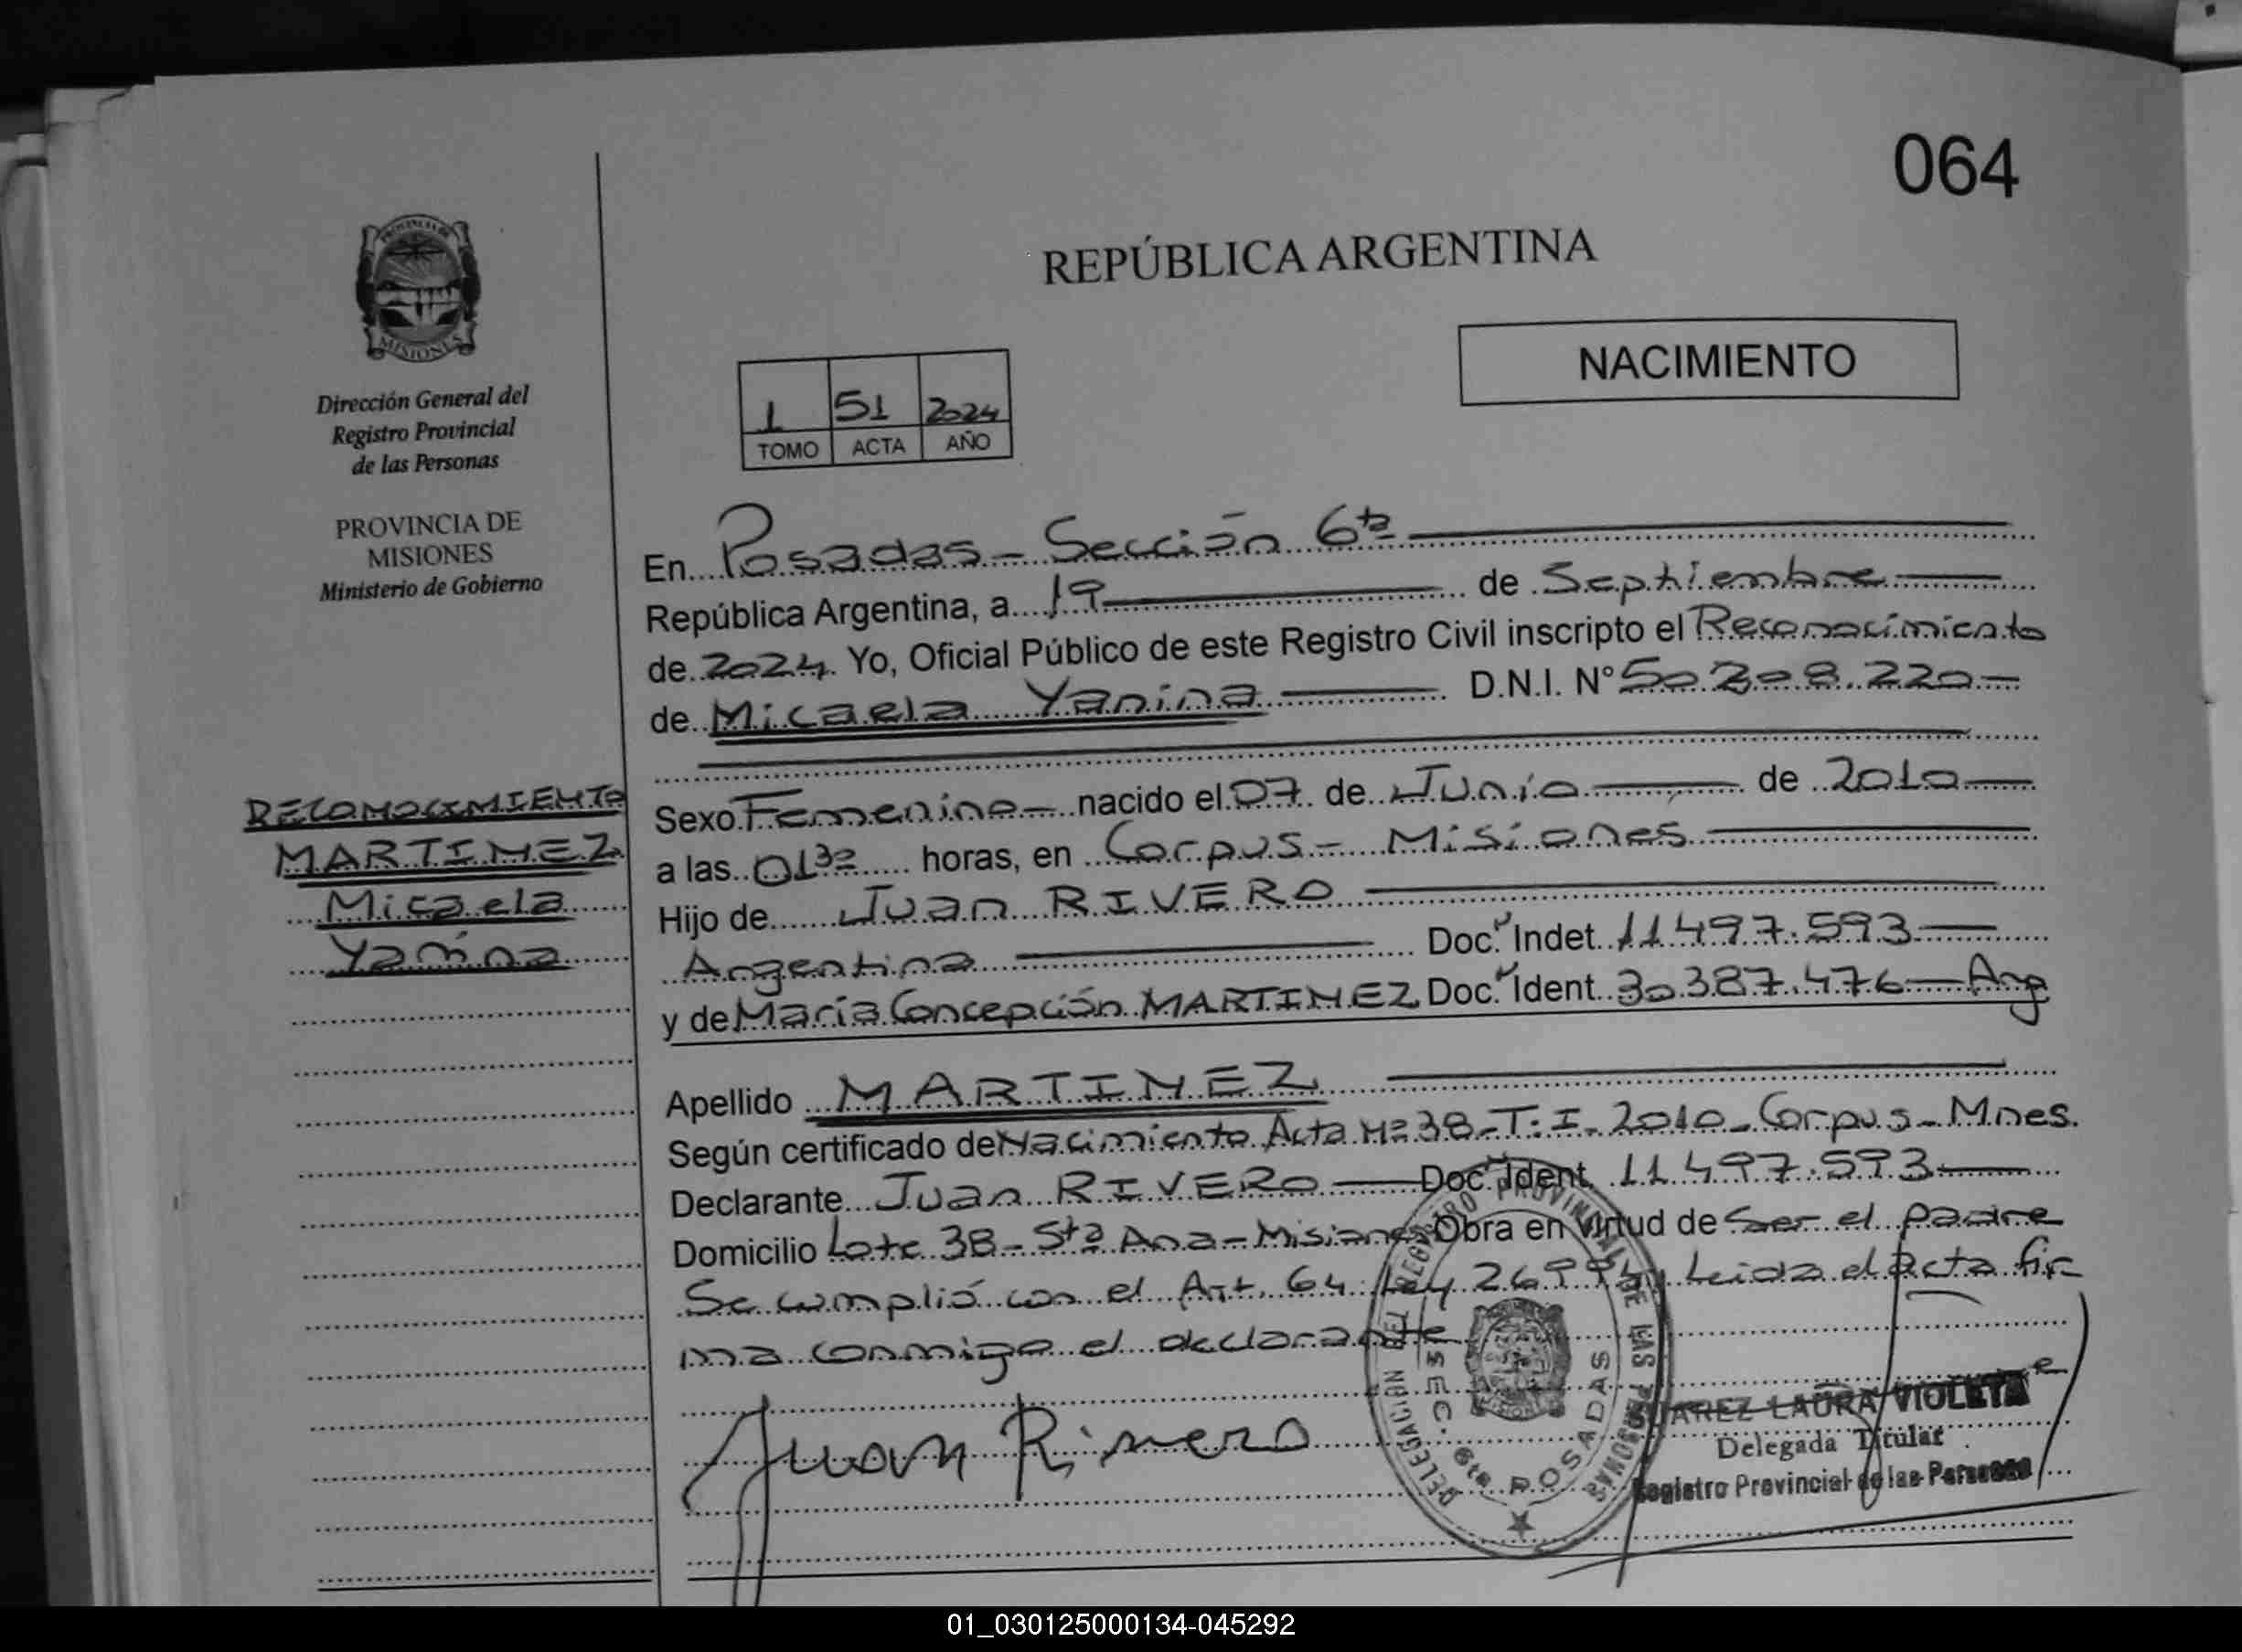 064
REPÚBLICA ARGENTINA
NACIMIENTO
PROVINCIA DE
MISIONES
Dirección General del
Registro Provincial
de las Personas
PROVINCIA DE
MISIONES
Ministerio de Gobierno
1 51 2024
TOMO ACTA AÑO
En Posadas - Sección 6ta
República Argentina, a 19 de Septiembre
de 2024. Yo, Oficial Público de este Registro Civil inscripto el Reconocimiento
de Micaela Yanina D.N.I. N° 50.208.220-
RECONOCIMIENTO
MARTINEZ
Micaela
Yanina
Sexo Femenino - nacido el 07 de Junio de 2010
a las 01 30 horas, en Corpus - Misiones
Hijo de Juan RIVERO
Argentina Doc. Indet. 11.497.593
y de María Concepción MARTINEZ Doc. Ident. 30.387.476 - Arg
Apellido MARTINEZ
Según certificado de Nacimiento Acta Nº 38 - T: I - 2010 - Corpus - Mnes.
Declarante Juan RIVERO Doc. Ident. 11.497.593
Domicilio Lote 38 - Sta Ana - Misiones Obra en virtud de Ser el padre
Se cumplió con el Art. 64 Ley 26994, Leida el acta fir
ma conmigo el declarante
Juan Rivero
DELEGACIÓN DEL REGISTRO PROVINCIAL DE LAS PERSONAS
SEC. 6ta POSADAS
SUAREZ LAURA VIOLETA
Delegada Titular
Registro Provincial de las Personas
01_030125000134-045292